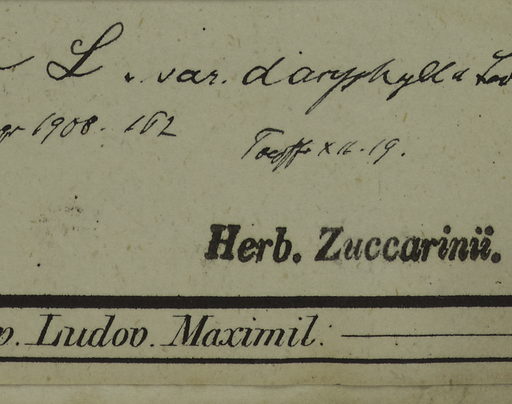 L. var. dasyphylla
1908. 162
Toepffer XII. 19.
Herb. Zuccarinii.
Ludov. Maximil: